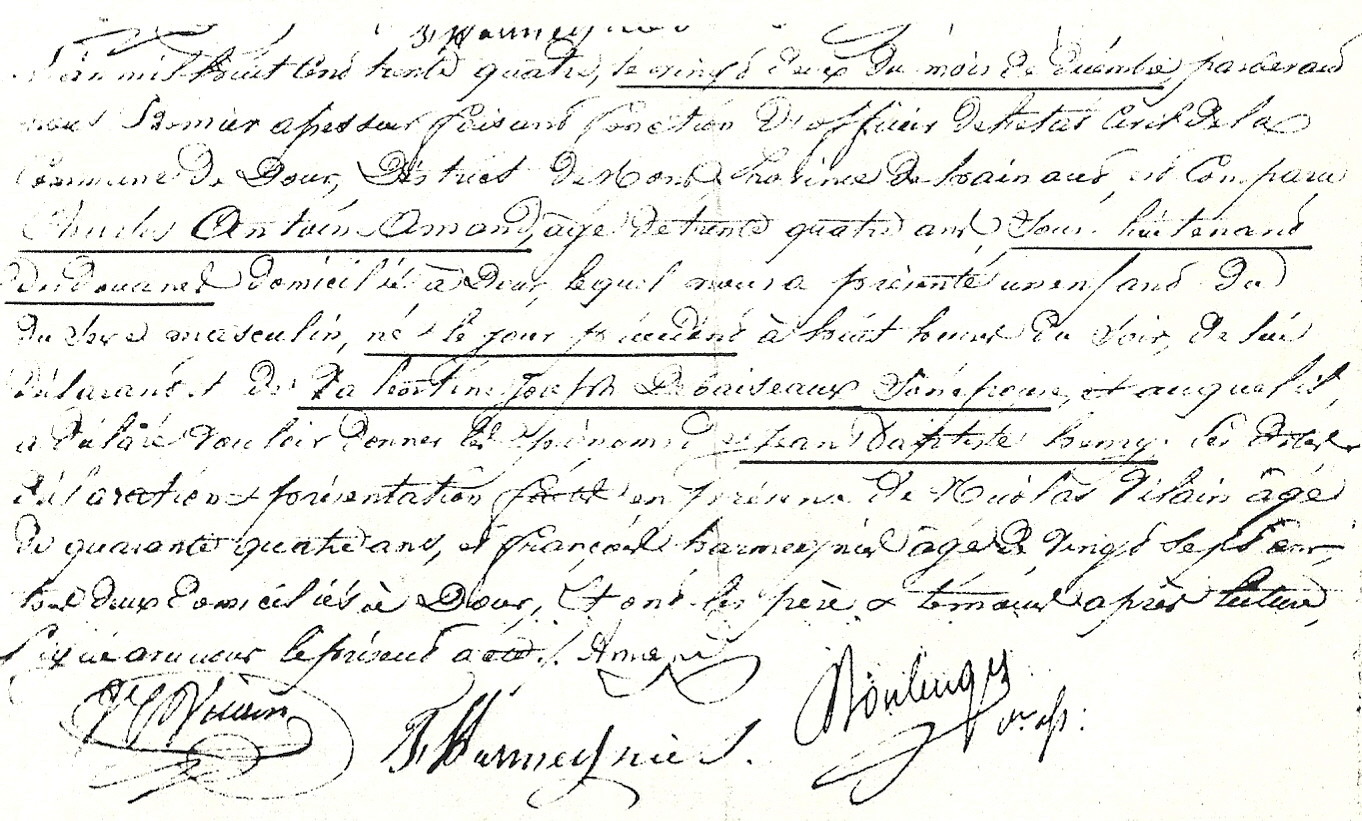 F. Harmegnies
L'an mil huit cent trente quatre, le vingt deux du mois de décembre, pardevant
nous Premier assesseur faisant fonction d'officier de l'etat civil de la
Commune de Dour, District de Mons Province de hainaut, est Comparu
Charles Antoine Amand, agé de trente quatre ans, Sous-lieutenant
des douanes domicilié à Dour, lequel nous a présenté un enfant du
du sexe masculin, né le jour précédent à huit heures du Soir, de lui
déclarant & de Valentine Joseph Debaiseaux Son épouse, et auquel il
a déclaré vouloir donner les prénoms de Jean Baptiste henry. Les
déclaration & présentation faites en présence de Nicolas Vilain âgé
de quarante quatre ans, et françois harmegnies agé de vingt sept ans,
tous deux domiciliés à Dour, Et ont les père & témoins après lecture,
Signé avec nous le présent acte. Amand
Vilain F. Harmegnies. Boulenger